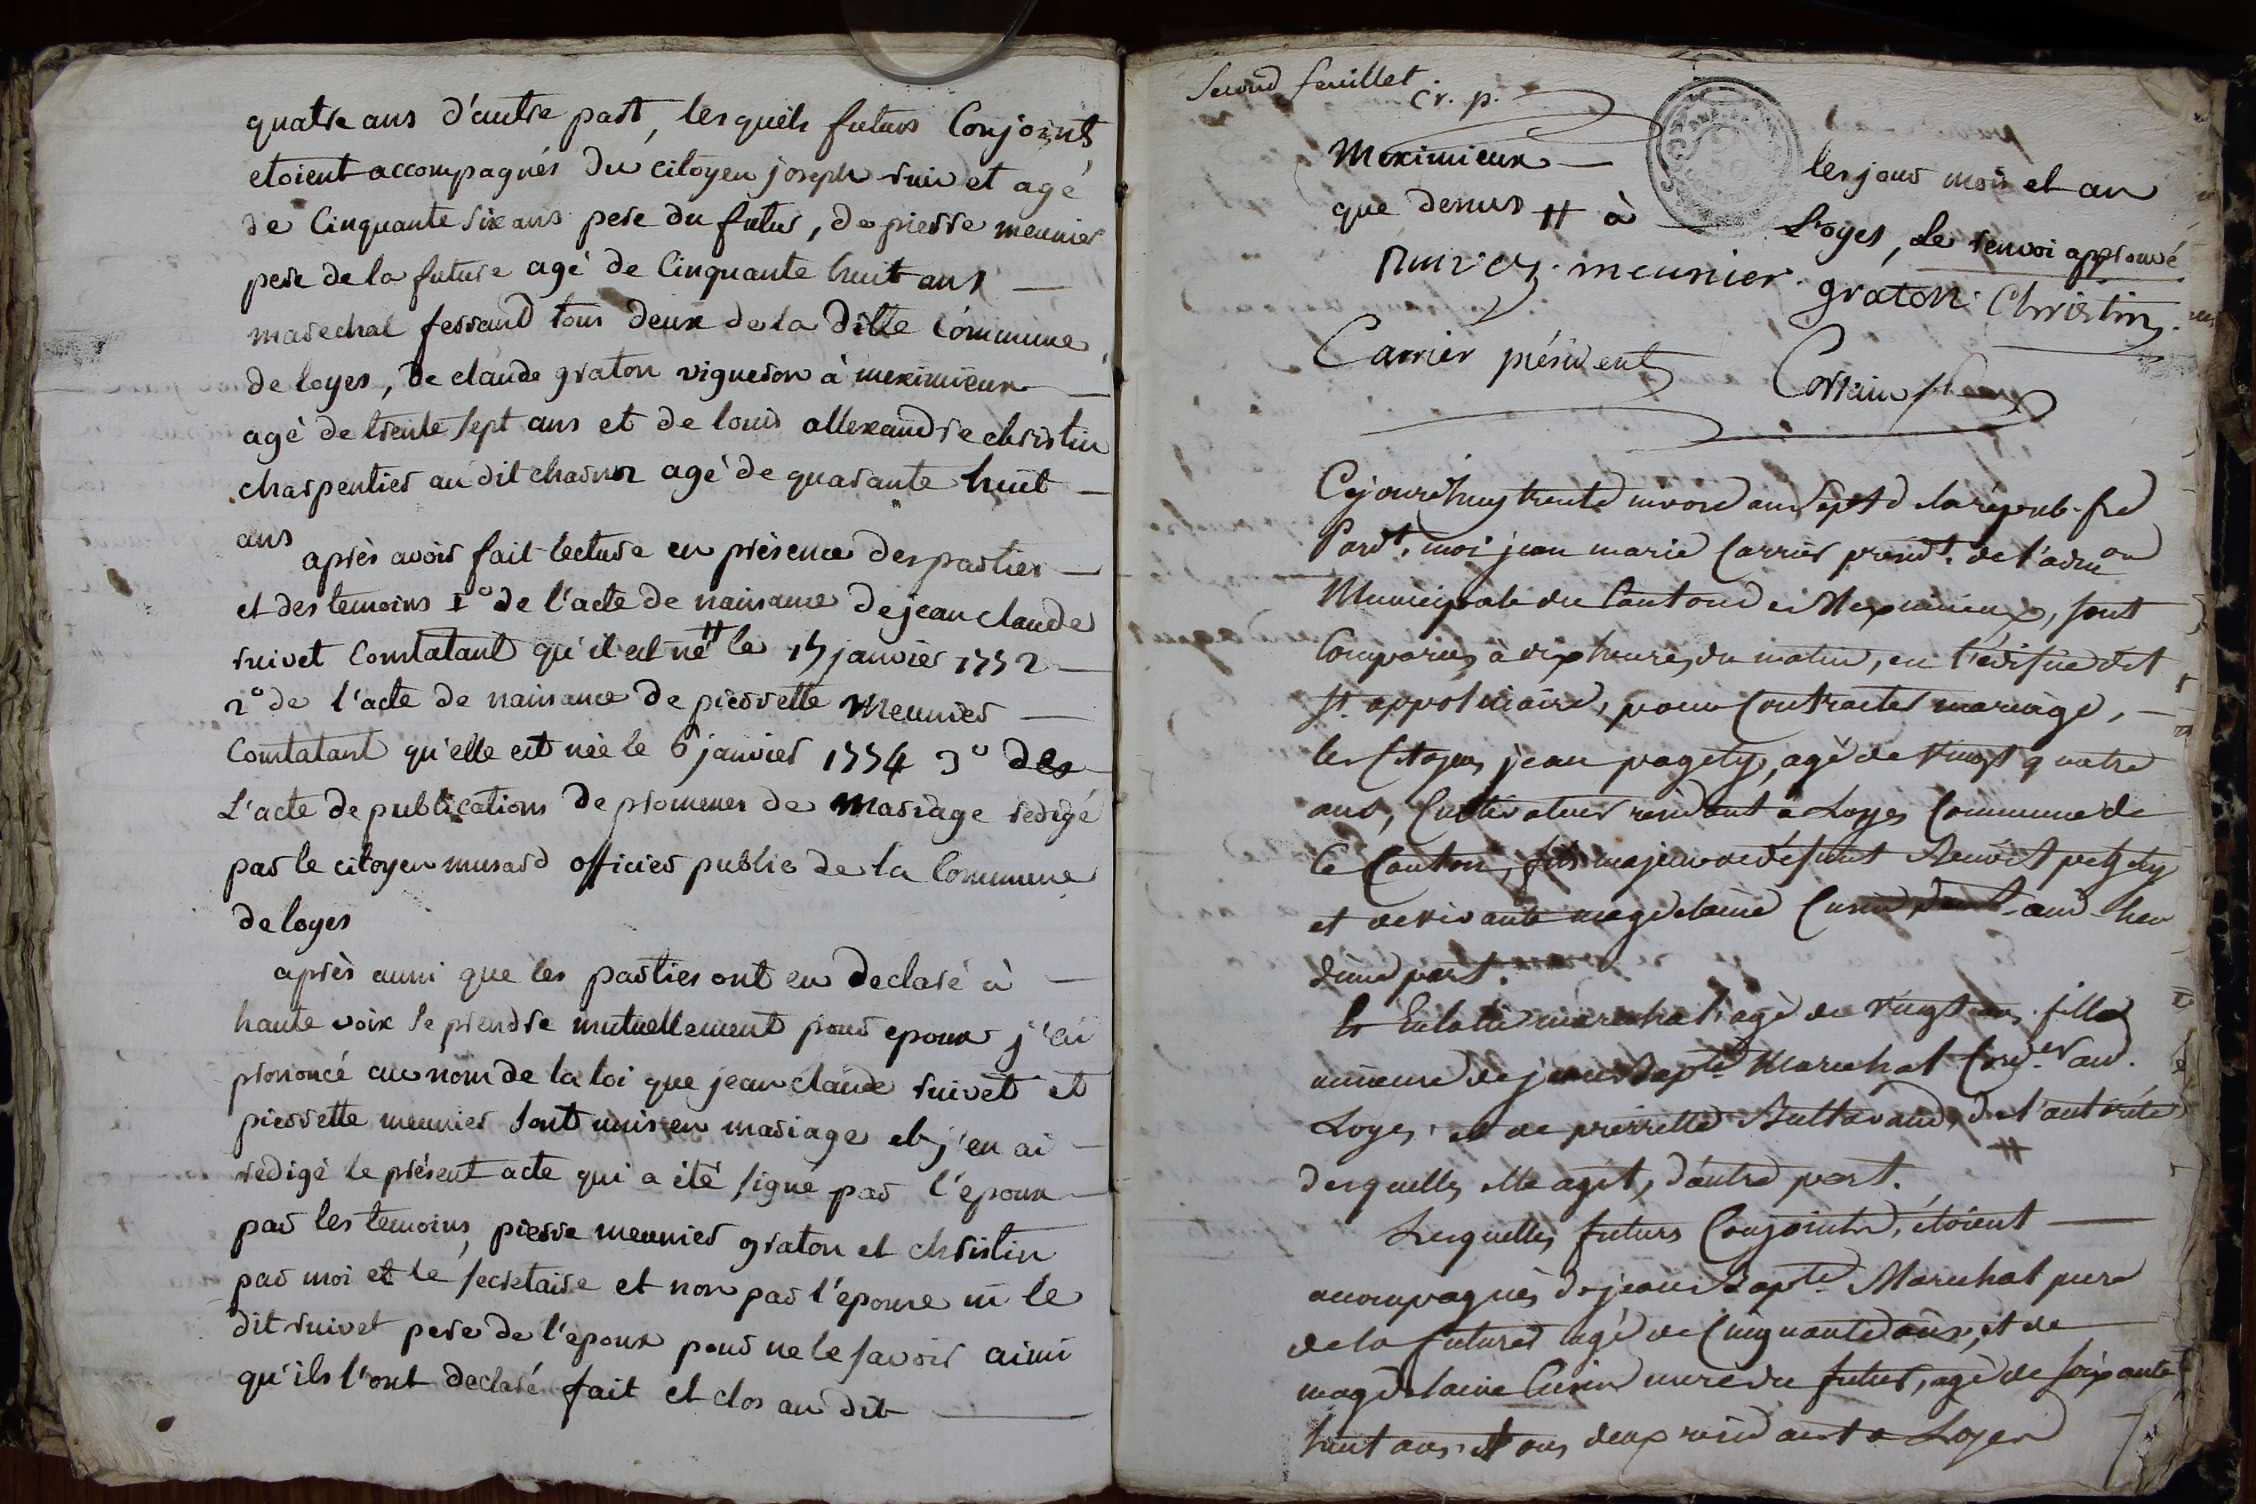 quatre ans d'autre part, lesquels futurs Conjoints
etoient accompagnés du citoyen joseph ruivet agé
de Cinquante six ans pere du futur, de pierre meunier
pere de la future agé de Cinquante huit ans
marechal ferrand tous deux de la ditte Commune
de loyes, de claude graton vigneron à meximieux
agé de trente sept ans et de louis allexandre christin
charpentier au dit charnoz agé de quarante huit
ans
après avoir fait lecture en présence des parties
et des temoins 1° de l'acte de naissance de jean claude
ruivet Constatant qu'il est né # le 15 janvier 1752
2° de l'acte de naissance de pierrette Meunier
Constatant qu'elle est née le 6 janvier 1754 3° des
L'acte de publications de promesses de Mariage redigé
par le citoyen musard officier public de la Commune
de loyes
après aussi que les parties ont eu declaré à
haute voix se prendre mutuellement pour epoux j'ai
prononcé au nom de la loi que jean claude ruivet et
pierrette meunier sont unis en mariage et j'en ai
redigé le présent acte qui a été signé par l'epoux
par les temoins, pierre meunier graton et christin
par moi et le secretaire et non par l'epouse ni le
dit ruivet pere de l'epoux pour ne le savoir ainsi
qu'ils l'ont declaré fait et clos au dit
Second feuillet
Cr. p.
Meximieux les jour mois et an
que dessus # à Loyes, le renvoi approuvé
meunier graton Christin
Carrier président
Cejourd'huy trente nivose an Sept de la répub. fse
Pard.t moi jean marie Carrier presid.t de l'adm.on
Municipale du Canton de Meximieux, sont
Comparus, à dix heures du matin, en l'édifice dit
St. appolinaire, pour Contracter mariage,
les Citoyens jean pagety, agé de vingt quatre
ans, Cultivateur résidant à Loyes Commune de
Ce Canton, fils majeur de défunt Benoit pagety
et de vivante magdelaine Cusin aud. lieu
d'une part.
Et Eulalie marechal, agé de vingt ans, fille
mineure de jean Bapt.te Marechal aud.
Loyes, et de pierrette Buttavand, de l'autorité
#
desquells elle agit, d'autre part.
Lesquells futurs Conjoints, étoient
accompagnés de jean Bapt.te Marechal pere
de la future agé de Cinquante ans, et de
magdelaine Cusin mere du futur, agé de soixante
huit ans, tous deux residants à Loyes